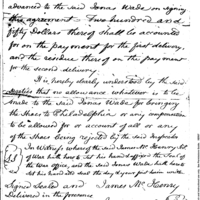 advanced to the said Jonas Wade on signing
this agreement Two hundred and
fifty Dollars thereof shall be accounted
for on the payment for the first delivery
and the residue thereof on the payment
for the second delivery.
It is hereby clearly understood by the said
parties that no allowance whatever is to be
made to the said Jonas Wade for bringing
the Shoes to Philadelphia or any compensation
to be allowed for or account of all or any
of the Shoes being rejected by the said Inspector
In Witness whereof the said James McHenry Sec
of War hath hereto set his hand & affixed the Seal of
the War office, and the said Jonas Wade hath hereto
set his hand and seal the day & year first within
Signed Sealed and James McHenry
Delivered in the presence